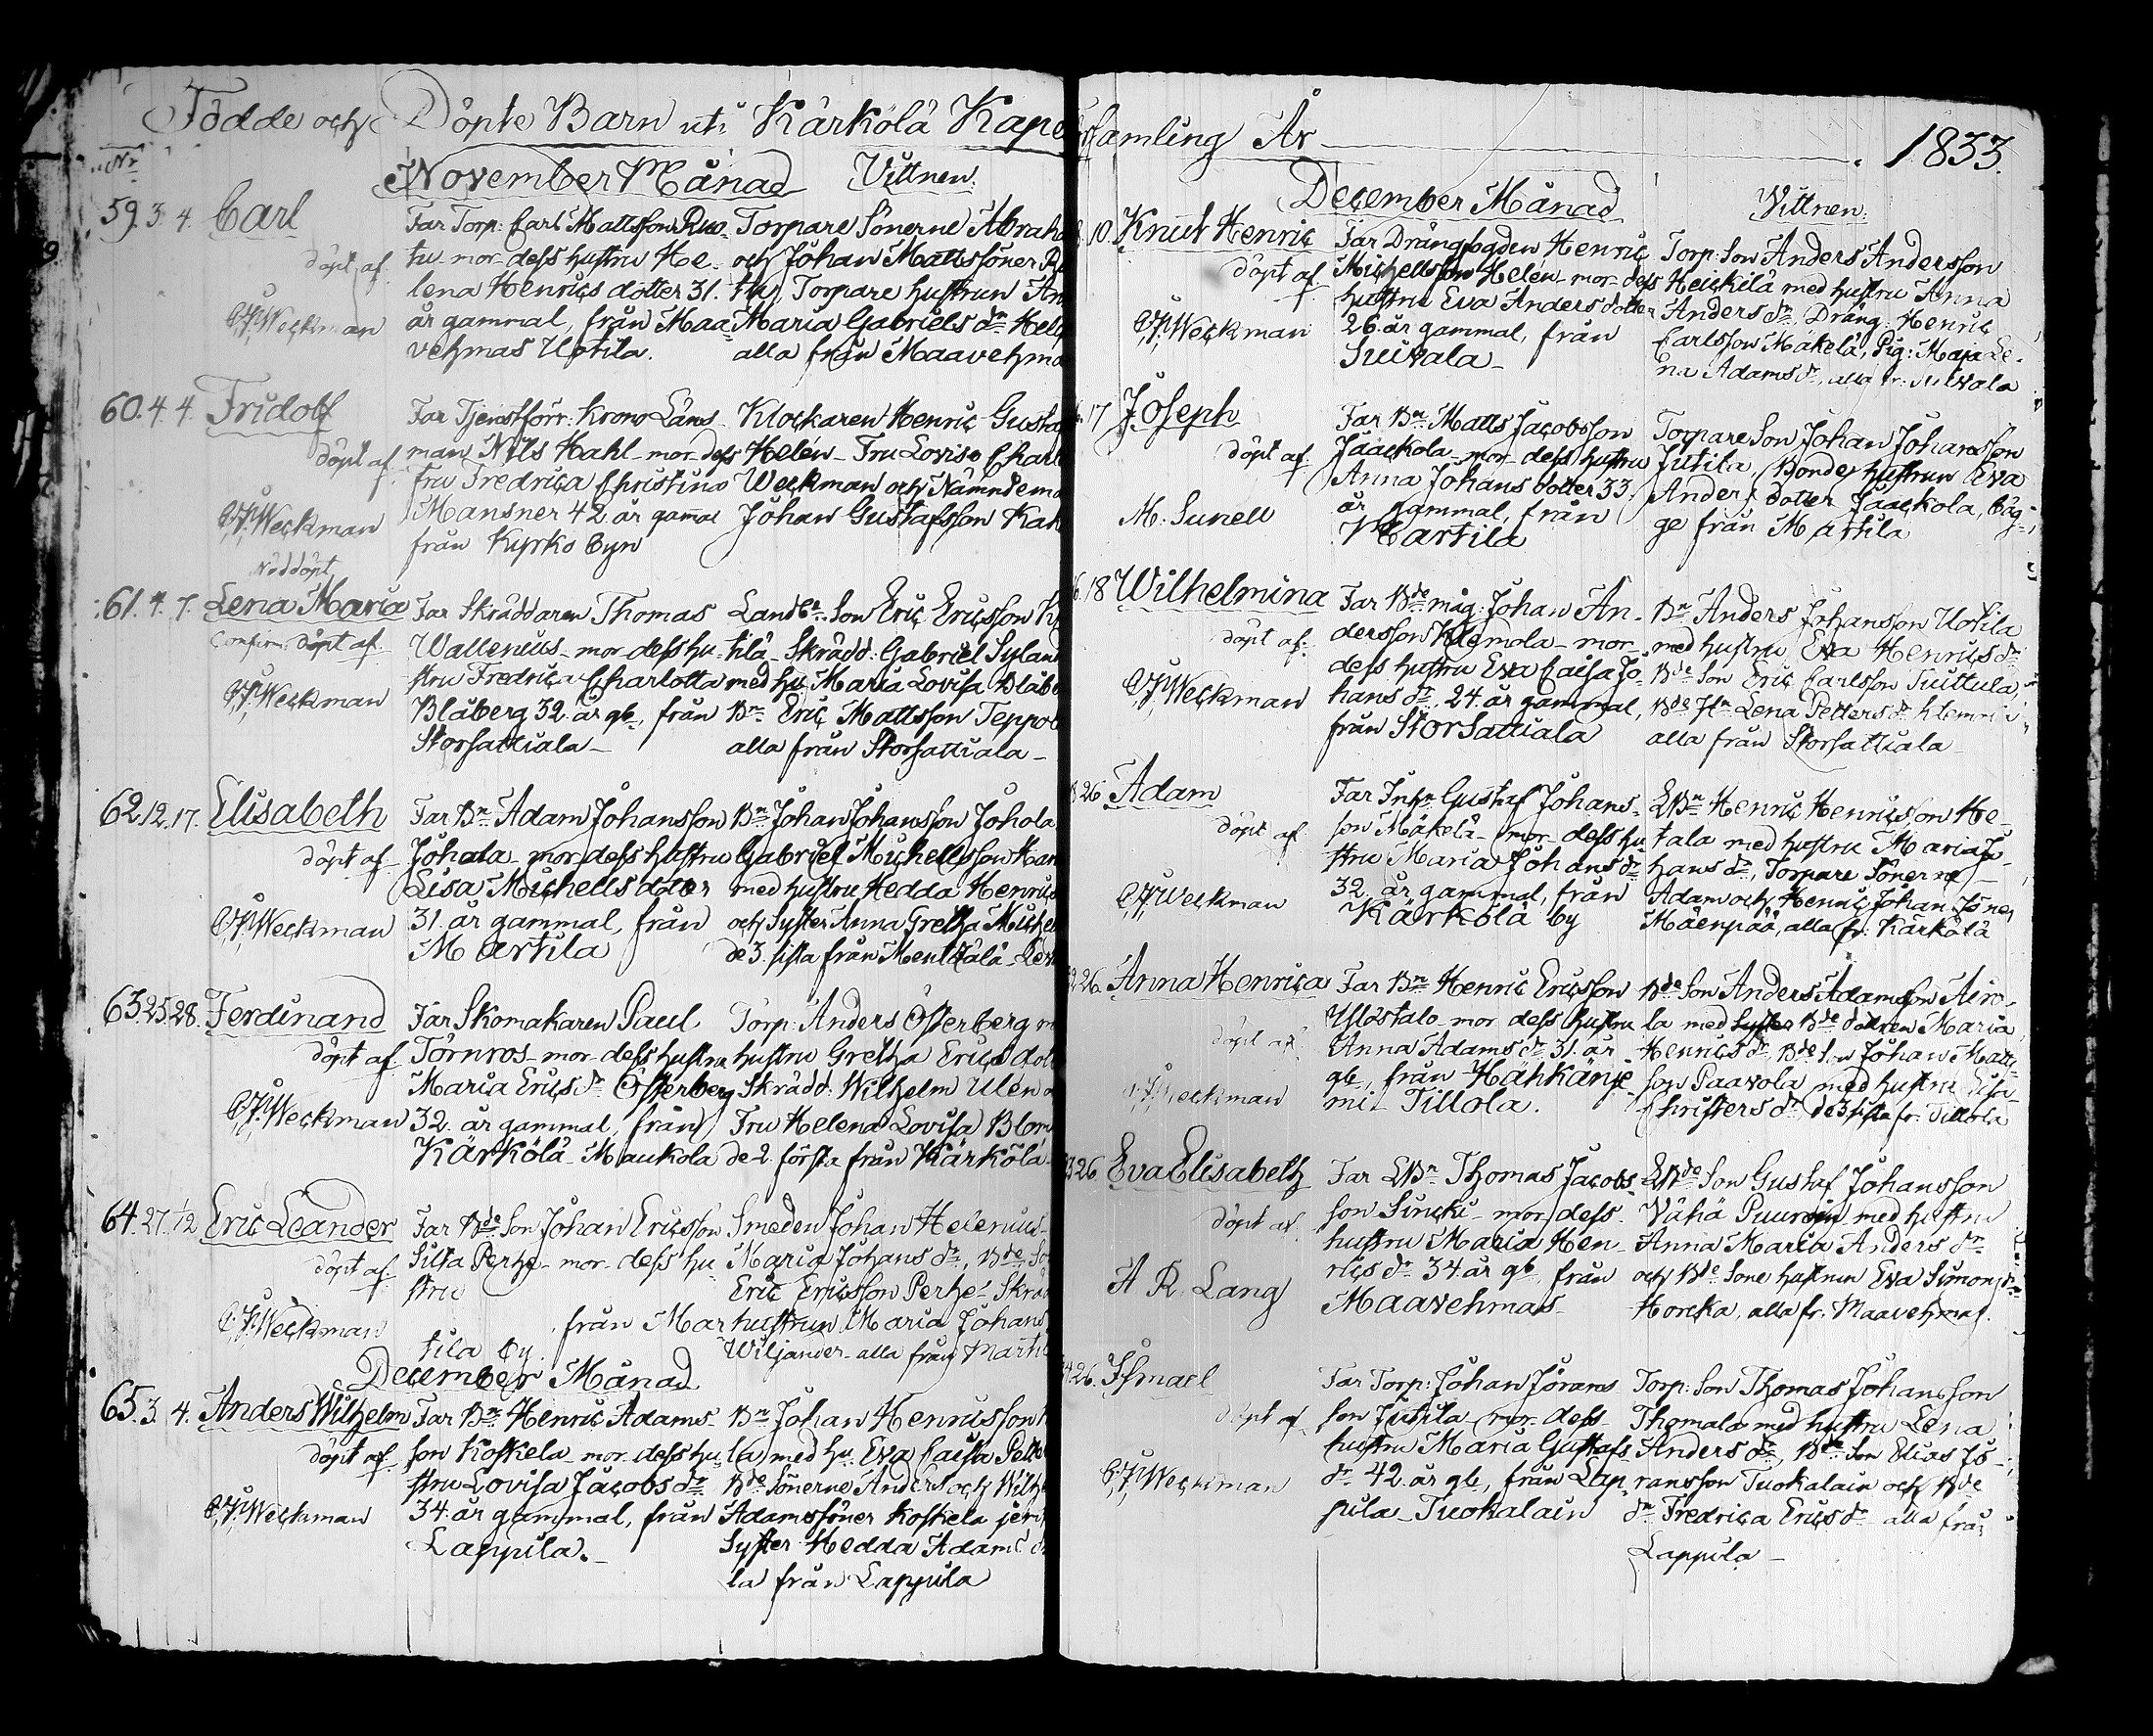 Födde och Döpte Barn uti Kärkölä Kape
Nr
November Månad Vittnen:
59. 3. 4. Carl
döpt af
C.J. Weckman
Far Torp: Carl Mattsson Ruo-
tu - mor - dess hustru He-
lena Henrics dotter 31.
år gammal, från Maa-
vehmas Uotila.
Torpare Sönerne Abraha
och Johan Mattssöner
Torpare hustrun An
Maria Gabriels dr Hela
alla från Maavehma
60. 4. 4. Fridolf
döpt af
C.J. Weckman
Far Tjenstförr: Krono Läns
man Nils Hahl - mor - dess
fru Fredrica Christina
Mansner 42. år gamal
från Kyrko byn
Klockaren Henric Gustaf
Helén - Fru Lovisa Charl
Weckman och Nämndema
Johan Gustafsson Kah
Nöddöpt
61. 4. 7. Lena Maria
Confirm: döpt af
C.J. Weckman
Far Skräddaren Thomas
Wallenius - mor dess hu-
stru Fredrica Charlotta
Blåberg 32. år gl, från
Storsattiala -
Landb: Son Eric Ericsson
tilä - Skrädd: Gabriel Sylan
med hu Maria Lovisa Blåb
Bn Eric Mattsson Teppo
alla från Storsattiala -
62. 12. 17. Elisabeth
döpt af
C.J. Weckman
Far Bn Adam Johansson
Johala - mor dess hustru
Lisa Michells dotter
31. år gammal, från
Martila
Bn Johan Johansson Johola
Gabriel Michellsson
med hustru Hedda Henrics
och Syster Anna Gretha Miche
de 3. sista från Mentzälä
63. 25. 28. Ferdinand
döpt af
C.J. Weckman
Far Skomakaren Paul
Törnros - mor - dess hustru
Maria Erics dr Österberg
32. år gammal, från
Kärkölä - Maukola
Torp: Anders Österberg m
hustru Gretha Erics dot
Skrädd: Wilhelm Ulen
Fru Helena Lovisa Blom
de 2. första från Kärkölä
64. 27. 1/12 Eric Leander
döpt af
C.J. Weckman
Far Bde Son Johan Ericsson
Silta Perhe - mor - dess hu-
stru
från Mar
tila by.
Smeden Johan Helenius
Maria Johans dr, Bde So
Eric Ericsson Perhe - Skrä
hustrun Maria Johans
Wiljander - alla från Marti
December Månad
65. 3. 4. Anders Wilhelm
döpt af
C.J. Weckman
Far Bn Henric Adams-
son Koskela - mor - dess hu-
stru Lovisa Jacobs dr
34. år gammal, från
Lappila. -
Bn Johan Henricsson
la med hu: Eva Caisa Pett
Bde Sönerne Anders och Wilh
Adamssöner Koskela
Syster Hedda Adams d
la från Lappila
samling År . 1833.
December Månad Vittnen:
10. Knut Henric
döpt af
C.J. Weckman
Far Drängfogden Henric
Michellsson Helen - mor - dess
hustru Eva Anders dotter
26. år gammal, från
Suivala -
Torp: Son Anders Andersson
Heickilä med hustru Anna
Anders dr, Dräng: Henric
Carlsson Mäkelä, Pig: Maja Le-
na Adams dr, alla fr: Suivala
17 Joseph
döpt af
M. Sunell
Far Bn Matts Jacobsson
Jaackola - mor - dess hustru
Anna Johans dotter 33.
år gammal, från
Martila
Torpare Son Johan Johansson
Jutila, Bonde hustrun Eva
Anders dotter Jaackola, båg-
ge från Martila
18 Wilhelmina
döpt af
C.J. Weckman
Far Bde måg: Johan An-
dersson Klemola - mor -
dess hustru Eva Caisa Jo-
hans dr 24. år gammal,
från Storsattiala
Bn Anders Johansson Uotila
med hustru Eva Henrics dr
Bde Son Eric Carlsson Tuittula,
Bde Hn Lena Petters dr
alla från Storsattiala
26 Adam
döpt af
C.J. Weckman
Far Inhn Gustaf Johans-
son Mäkelä - mor - dess hu-
stru Maria Johans dr
32. år gammal, från
Kärkölä by
EBn Henric Henricsson He-
tala med hustru Maria Jo-
hans dr, Torpare Sönerne
Adam och Henric Johan Söner
Mäenpää, alla fr: Kärkölä
26. Anna Henrica
döpt af
C.J. Weckman
Far Bn Henric Ericsson
Ylöstalo - mor dess hustru
Anna Adams dr 31. år
gl, från Hähkänje
mi - Tillola.
Bde Son Anders Adamsson Airo-
la med Syster Bde dottren Maria
Henrics dr Bde Son Johan Matts-
son Paavola med hustru Lisa
Christers dr de 3 sista fr. Tillola
26. Eva Elisabeth
döpt af
A R. Lang
Far EBn Thomas Jacobs-
son Sincki - mor - dess
hustru Maria Hen-
rics dr 34. år gl från
Maavehmas -
EBde Son Gustaf Johansson
Vähä Puurdin med hustru
Anna Maria Anders dr
och Bde Sone hustrun Eva Simons dr
Horcka, alla fr. Maavehmas.
26. Ismael
döpt af
C.J. Weckman
Far Torp: Johan Jörans
son Jutila - mor - dess
hustru Maria Gustafs
dr 42. år gl, från Lap
pila - Tuokalain
Torp: Son Thomas Johansson
Thomala med hustru Lena
Anders dr, Bde Son Elias Jö-
ransson Tuokalain och Bde
dr Fredrica Erics dr alla från
Lappila -